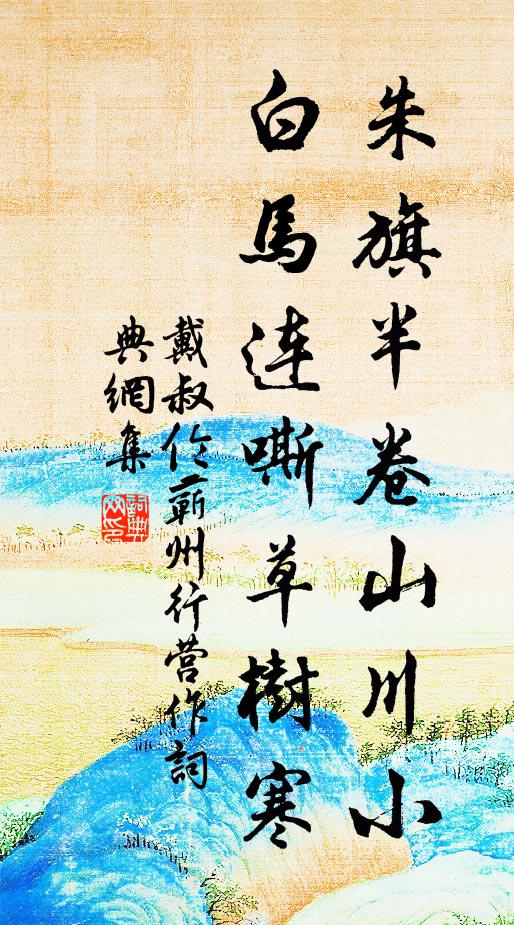 朱旗半卷山川小
白馬連嘶草樹寒
戴叔伦蕲州行营作詞
典網集
詞典